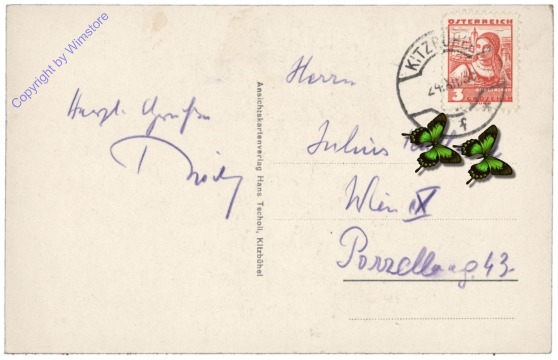 Copyright by Wimstore
Herzl. Grüße
Ansichtskartenverlag Hans Tscholl, Kitzbühel
ÖSTERREICH
3
GROSCHEN
KITZBÜHEL
24.
f
Herrn
Julius
Wien IX
Porzellang. 43.